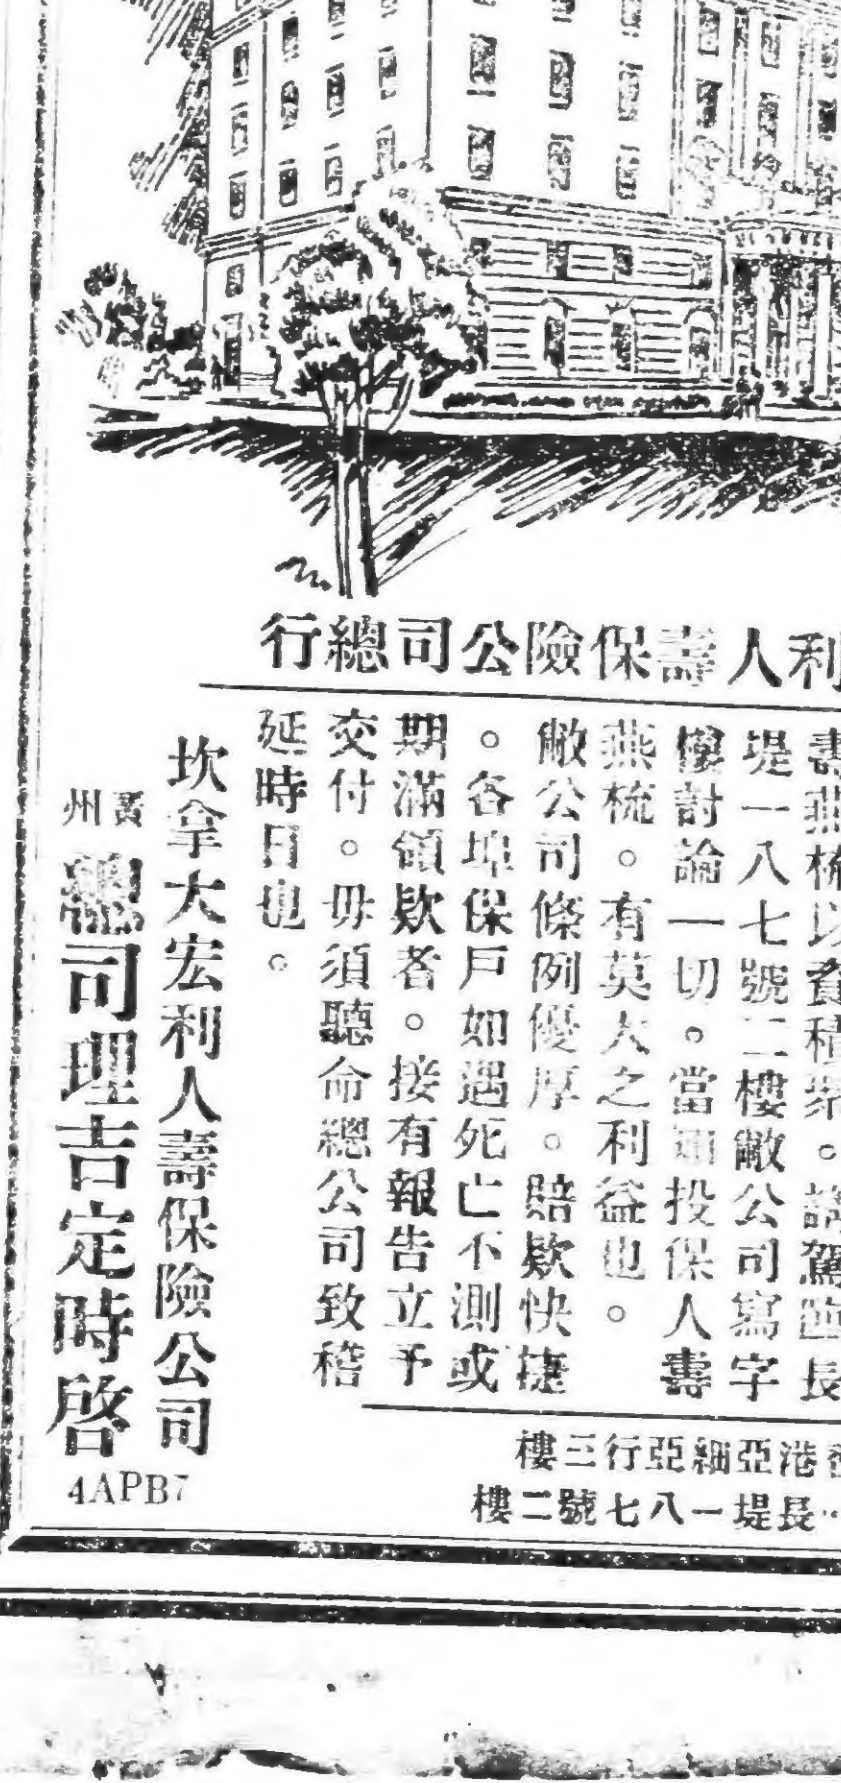 利人壽保險公司總行
壽燕梳以資積聚。請駕臨長
堤一八七號二樓敝公司寫字
樓討論一切。當知投保人壽
燕梳。有莫大之利益也。
敝公司條例優厚。賠欵快捷
。各埠保戶如遇死亡不測或
期滿領欵者。接有報告立予
交付。毋須聽命總公司致稽
延時日也。
坎拿大宏利人壽保險公司
廣州
總司理吉定時啓
4APB7
港亞細亞行三樓
長堤一八七號二樓